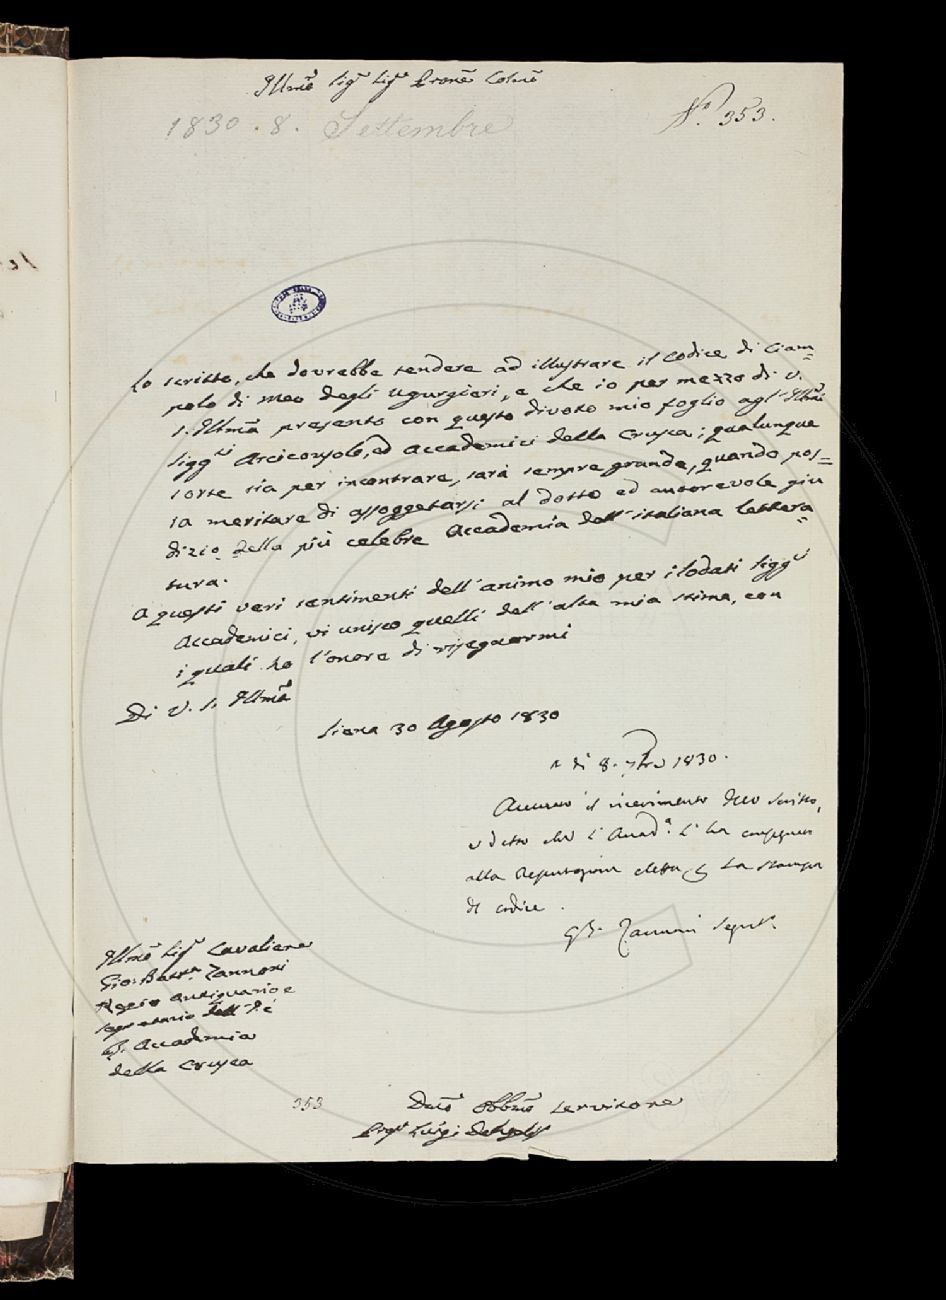 Illmo Sigr Sigr Prone Colmo
1830. 8. Settembre
No. 353.
Lo scritto, che dovrebbe tendere ad illustrare il Codice di Ciam=
polo di Meo degli Ugurgieri, e che io per mezzo di V.
S. Illma presento con questo divoto mio foglio agl'Illmi
Siggri Arciconsolo, ed Accademici della Crusca; qualunque
sorte sia per incontrare, sarà sempre grande, quando pos=
sa meritare di assoggettarsi al dotto ed autorevole giu
dizio della più celebre Accademia dell'italiana lettera=
tura.
A questi veri sentimenti dell'animo mio per i lodati Siggri
Accademici, vi unisco quelli dell'alta mia stima, con
i quali ho l'onore di rassegnarmi
Di V. S. Illma
Siena 30 Agosto 1830
A dì 8. 7bre 1830.
Accusato il ricevimento dello scritto,
e detto che l'Accada. l'ha consegnato
alla Deputazione eletta per la stampa
del codice.
GB. Zannoni Segret.
Illmo Sigr Cavaliere
Gio: Batta Zannoni
Regio Antiquario e
Segretario dell'I. e
R. Accademia
della Crusca
353
Devmo Obbmo Servitore
Luigi